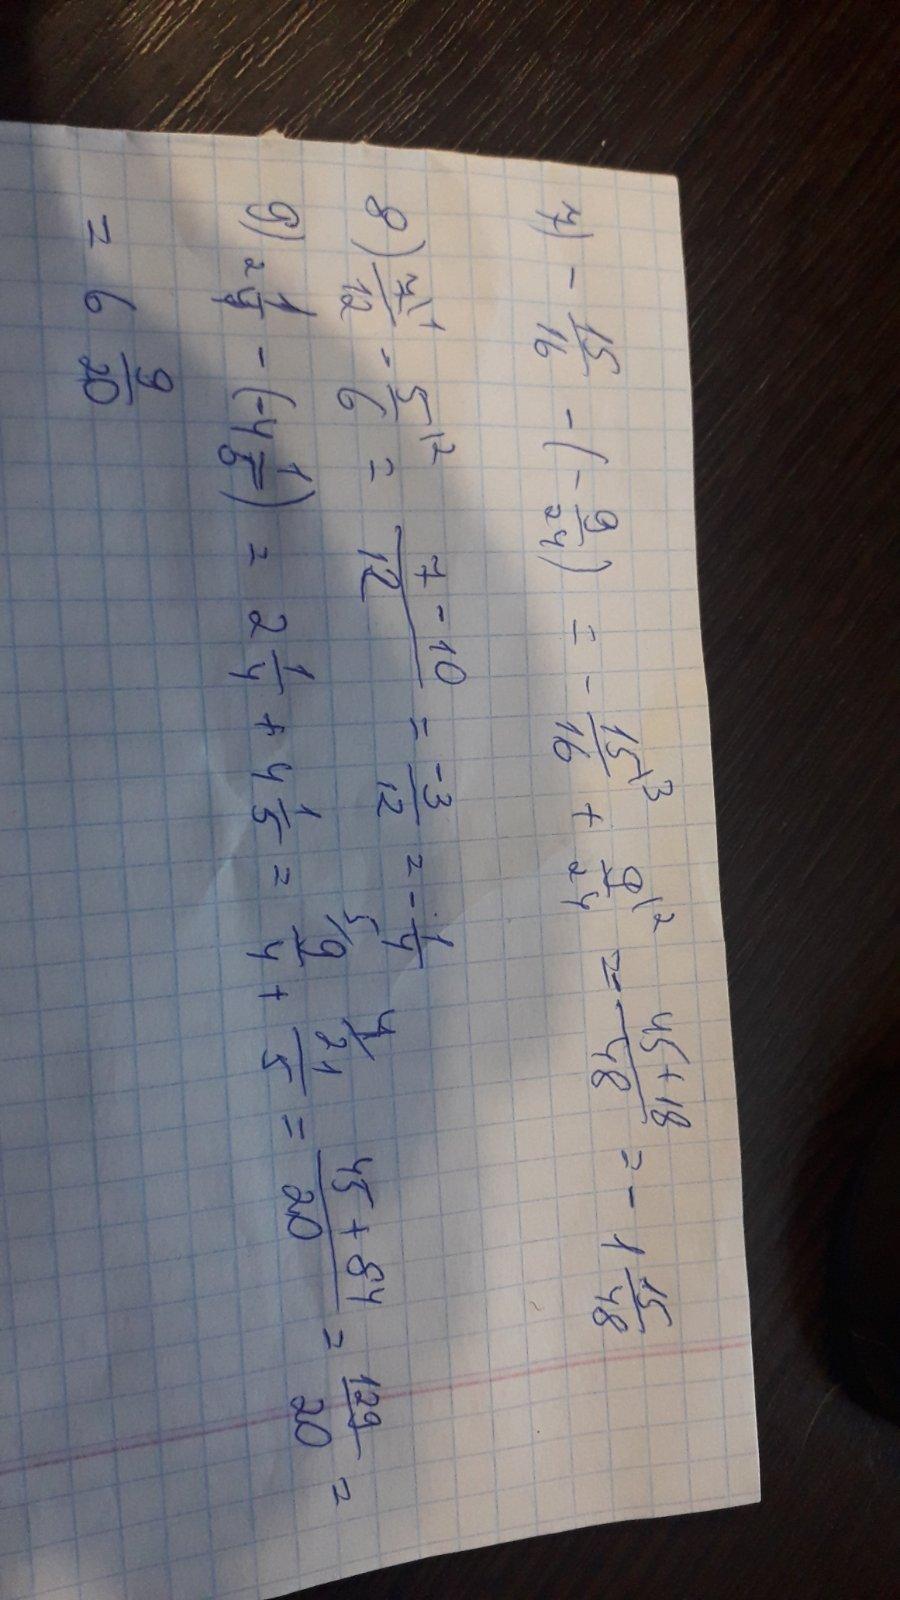 7) - 15/16 - (- 9/24) = - 15\3/16 + 9\2/24 = - 45+18/48 = - 1 15/48
8) 7\1/12 - 5\2/6 = 7-10/12 = -3/12 = - 1/4
9) 2 1/4 - (-4 1/5) = 2 1/4 + 4 1/5 = 5/9/4 + 4/21/5 = 45+84/20 = 129/20 =
= 6 9/20